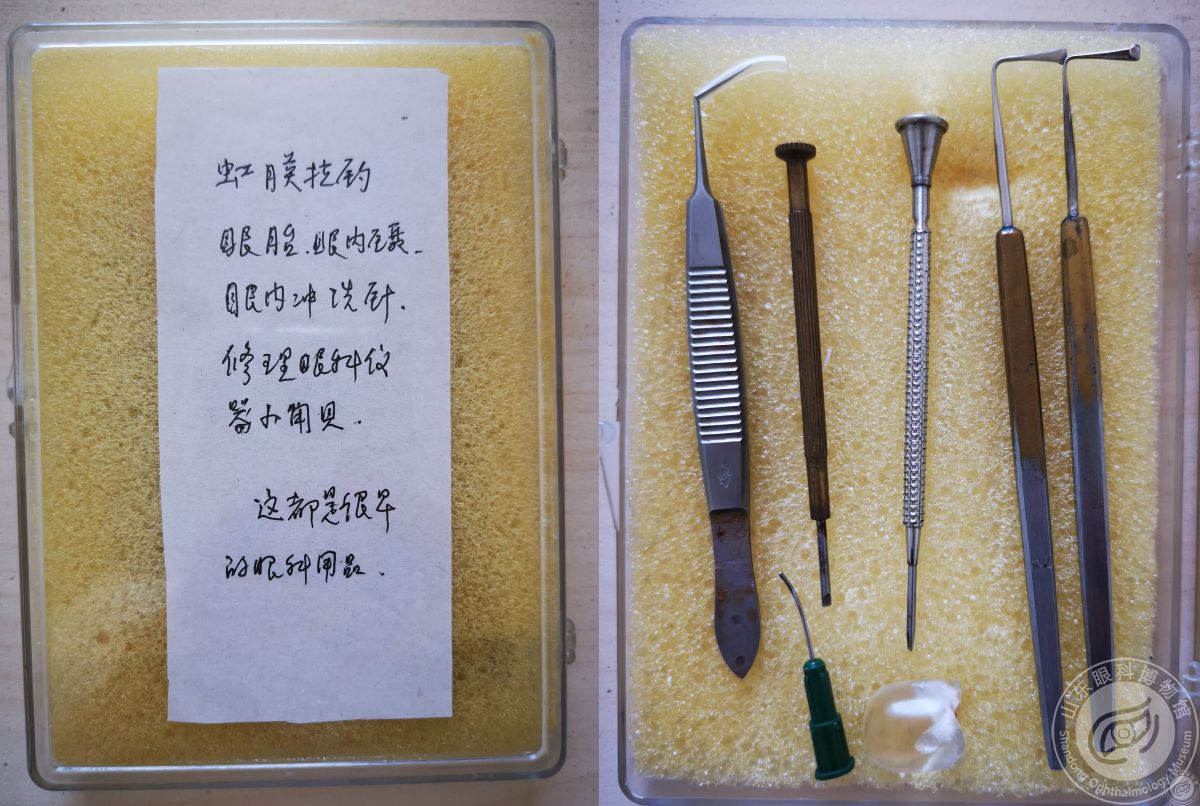 虹膜拉钩
眼内镊.
眼内冲洗针.
修理眼科仪
器小用具.
这都是很早
的眼科用品.
山东眼科博物馆
Shandong Ophthalmology Museum